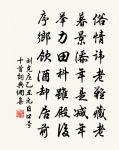 俗情諱老老難藏
暮景添年減年
舉力田科雖殿後
序鄉飲酒却居前
劉克莊 乙丑元日口號
十首 詩詞典網集